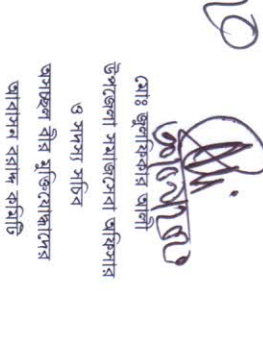 মোঃ জুলফিকার আলী
উপজেলা সমাজসেবা অফিসার
ও সদস্য সচিব
অসচ্ছল বীর মুক্তিযোদ্ধাদের
আবাসন বরাদ্দ কমিটি